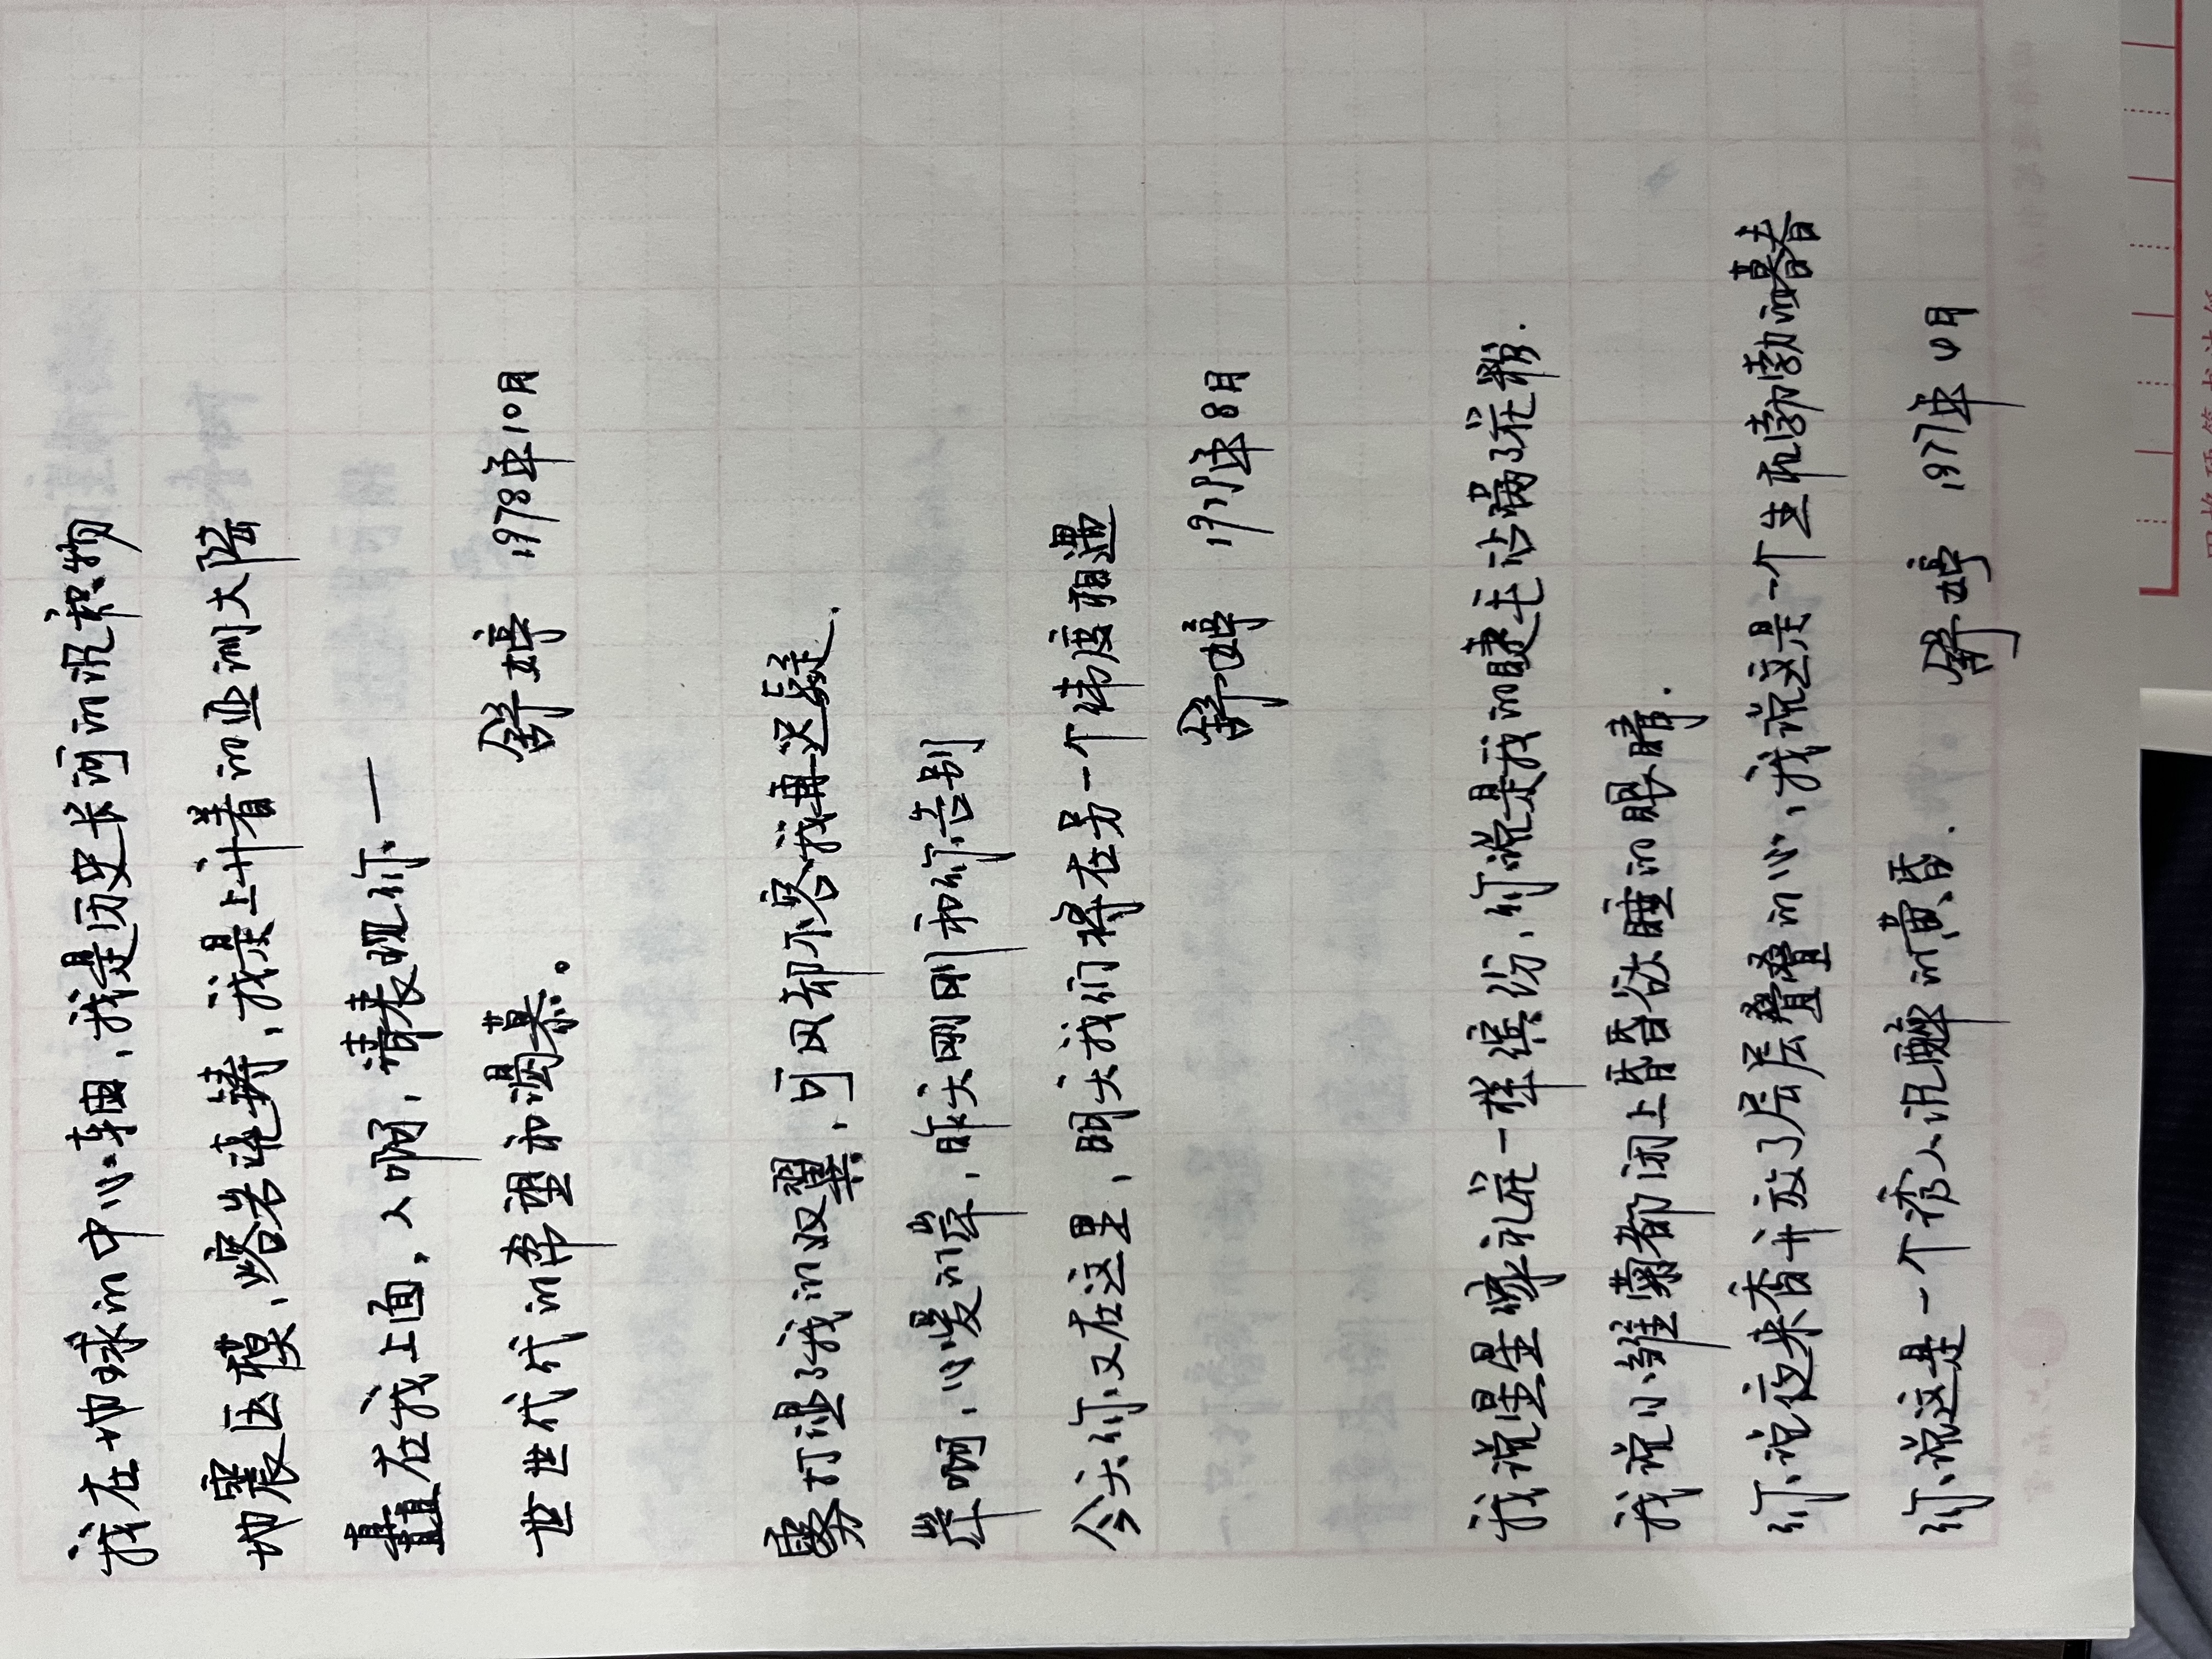 我在地球的中心轴，我是历史长河的沉积物
地震压模，熔岩浇铸，我是上升着的亚洲大陆
矗在我上面，人啊，请表现你—
世世代代的希望和渴慕。
舒婷 1978年10月
雾打湿了我的双翼，可风却不容我再迟疑.
岸啊，心爱的岸，昨天刚刚和你告别
今天你又在这里，明天我们将在另一个纬度相遇
舒婷 1977年8月
我说星星像礼花一样缤纷，你说是我的睫毛沾满了花粉.
我说小雏菊都闭上昏昏欲睡的眼睛.
你说夜来香并放了层层叠叠的心，我说这是一个生机勃勃的暮春
你说这是一个诱人沉醉的黄昏.
舒婷 1977年 月